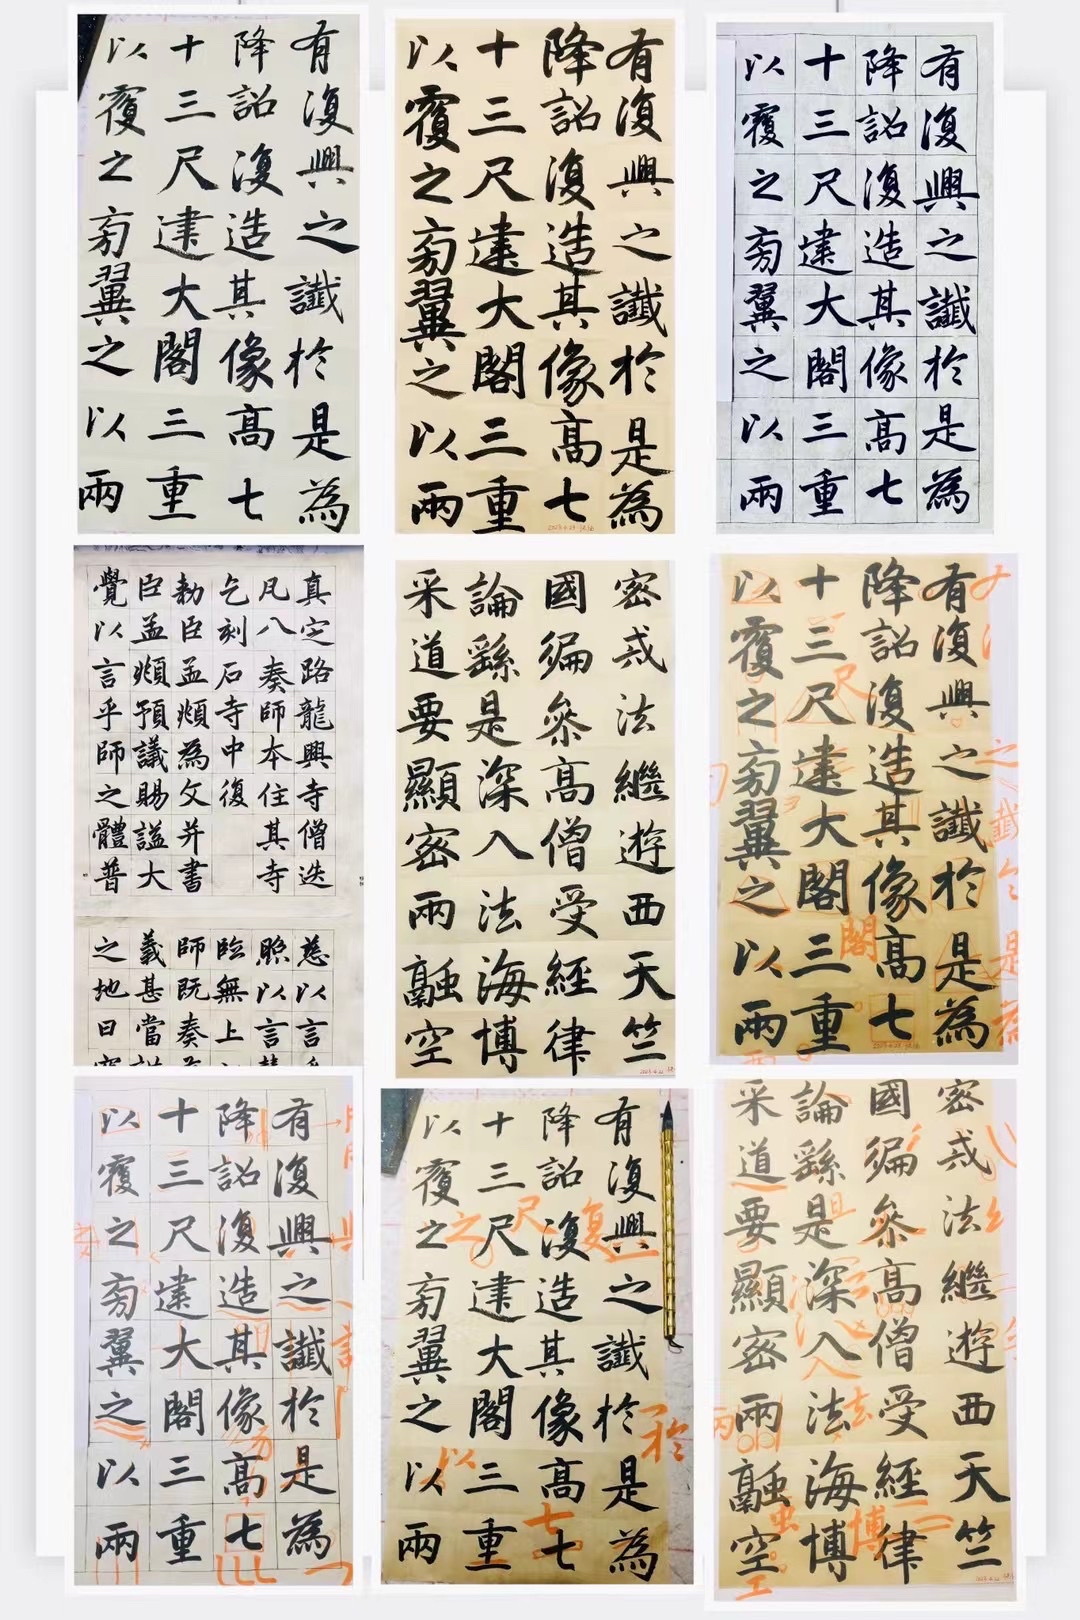 有復興之讖於是為
降詔復造其像高七
十三尺建大閣三重
以覆之旁翼之以兩
有復興之讖於是為
降詔復造其像高七
十三尺建大閣三重
以覆之旁翼之以兩
有復興之讖於是為
降詔復造其像高七
十三尺建大閣三重
以覆之旁翼之以兩
真定路龍興寺僧迭
凡八奏師本住其寺
乞刻石寺中復
勅臣孟頫為文并書
臣孟頫預議賜謚大
覺以言乎師之體普
慈以言
照以言
臨無上
師既奏
義甚當
之地曰
密戒法繼遊西天竺
國徧參高僧受經律
論繇是深入法海博
采道要顯密兩融空
有復興之讖於是為
降詔復造其像高七
十三尺建大閣三重
以覆之旁翼之以兩
有復興之讖於是為
降詔復造其像高七
十三尺建大閣三重
以覆之旁翼之以兩
有復興之讖於是為
降詔復造其像高七
十三尺建大閣三重
以覆之旁翼之以兩
密戒法繼遊西天竺
國徧參高僧受經律
論繇是深入法海博
采道要顯密兩融空